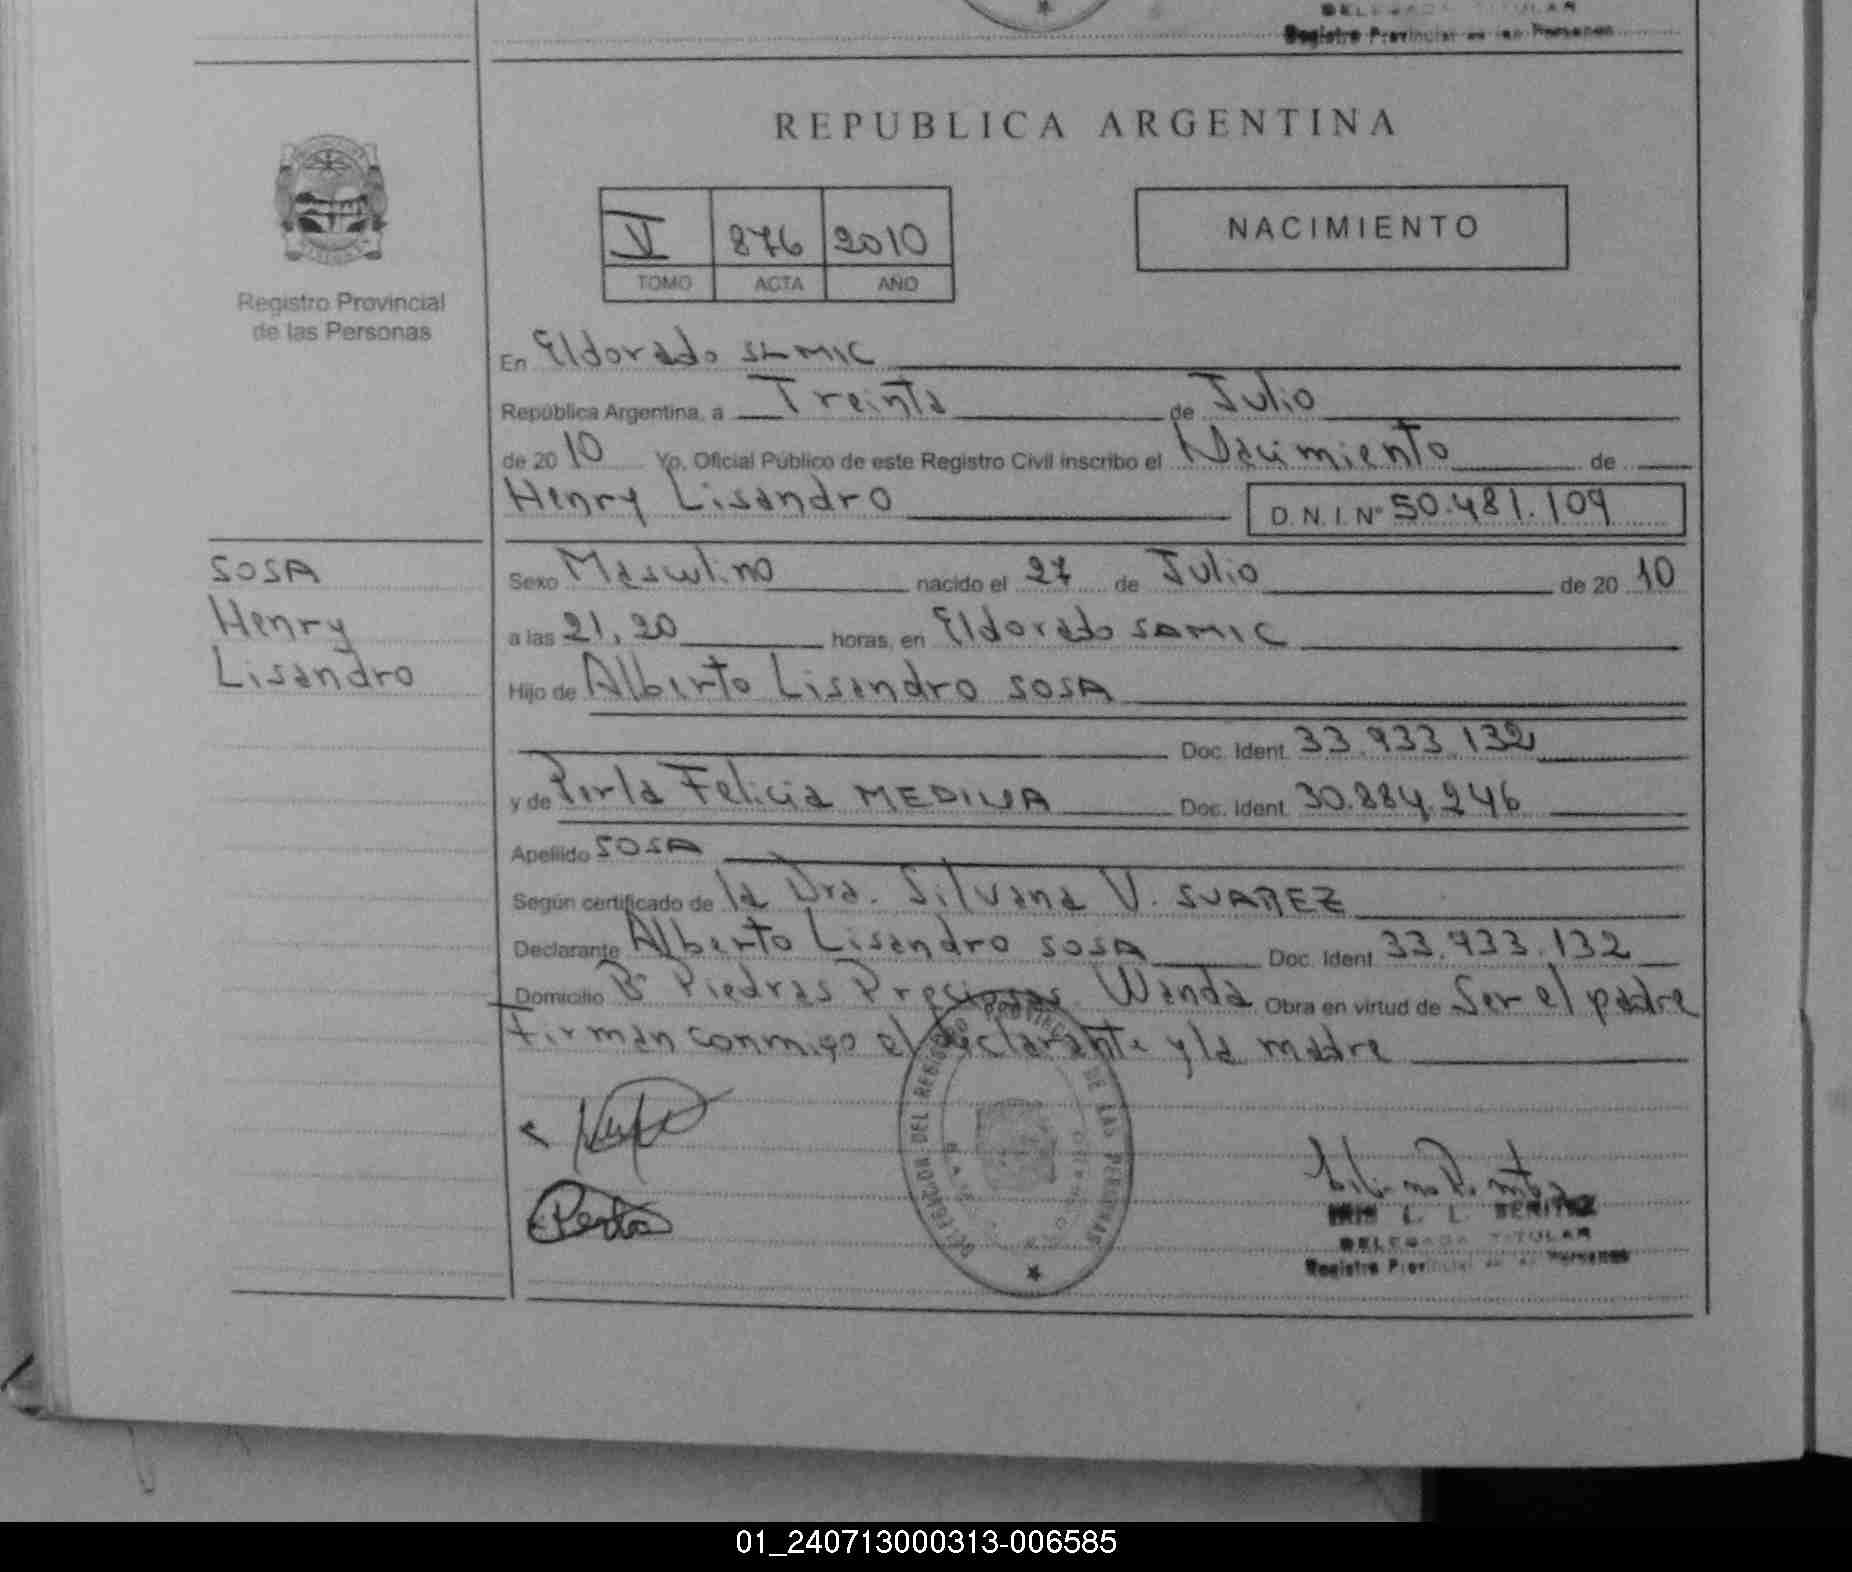 DELEGADA TITULAR
Registro Provincial de las Personas
REPUBLICA ARGENTINA
V 876 2010
TOMO ACTA AÑO
NACIMIENTO
Registro Provincial
de las Personas
En Eldorado SAMIC
República Argentina, a Treinta de Julio
de 2010 Yo, Oficial Público de este Registro Civil inscribo el Nacimiento de
Henry Lisandro D.N.I. Nº 50.481.109
SOSA
Henry
Lisandro
Sexo Masculino nacido el 27 de Julio de 2010
a las 21,20 horas, en Eldorado SAMIC
Hijo de Alberto Lisandro SOSA
Doc. Ident. 33.933.132
y de Perla Felicia MEDINA Doc. Ident. 30.884.246
Apellido SOSA
Según certificado de la Dra. Silvana V. SUAREZ
Declarante Alberto Lisandro SOSA Doc. Ident. 33.933.132
Domicilio Bº Piedras Preciosas Wanda Obra en virtud de Ser el padre
Firman conmigo el declarante y la madre
DELEGACION DEL REGISTRO PROVINCIAL DE LAS PERSONAS
Perla
IRIS L. L. BENITEZ
DELEGADA TITULAR
Registro Provincial de las Personas
01_240713000313-006585